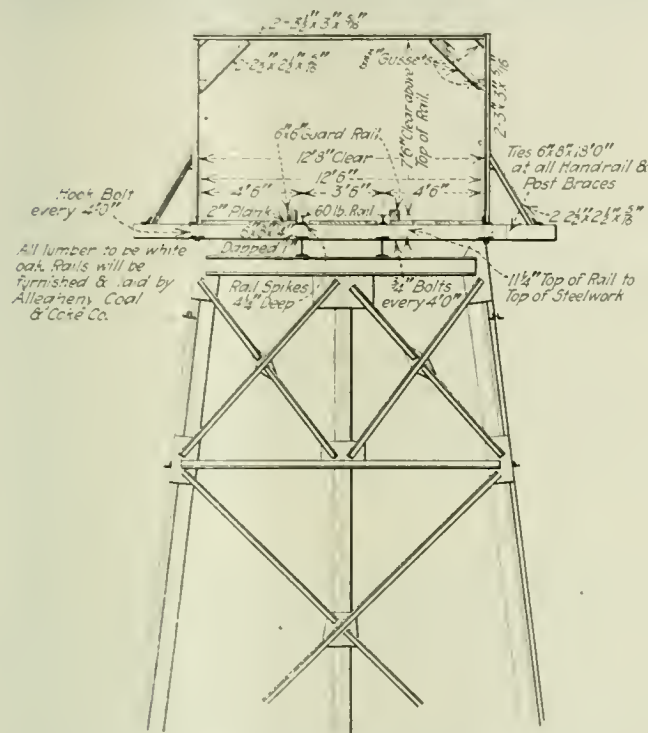 2-3½"×3"×5/16"
2-2½"×2½"×5/16"
Gussets
2-3"×3"×5/16"
7'6" Clear above
Top of Rail.
6"×6" Guard Rail
12'8" Clear
12'6"
4'6" 3'6" 4'6"
Ties 6"×8"×18'0"
at all Handrail &
Post Braces
Hook Bolt
every 4'0"
2" Plank
60 lb. Rail
2 2½"×2½"×5/16"
Dapped 1"
All lumber to be white
oak. Rails will be
furnished & laid by
Allegheny Coal
& Coke Co.
Rail Spikes
4¼" Deep
¾" Bolts
every 4'0"
11¼" Top of Rail to
Top of Steelwork